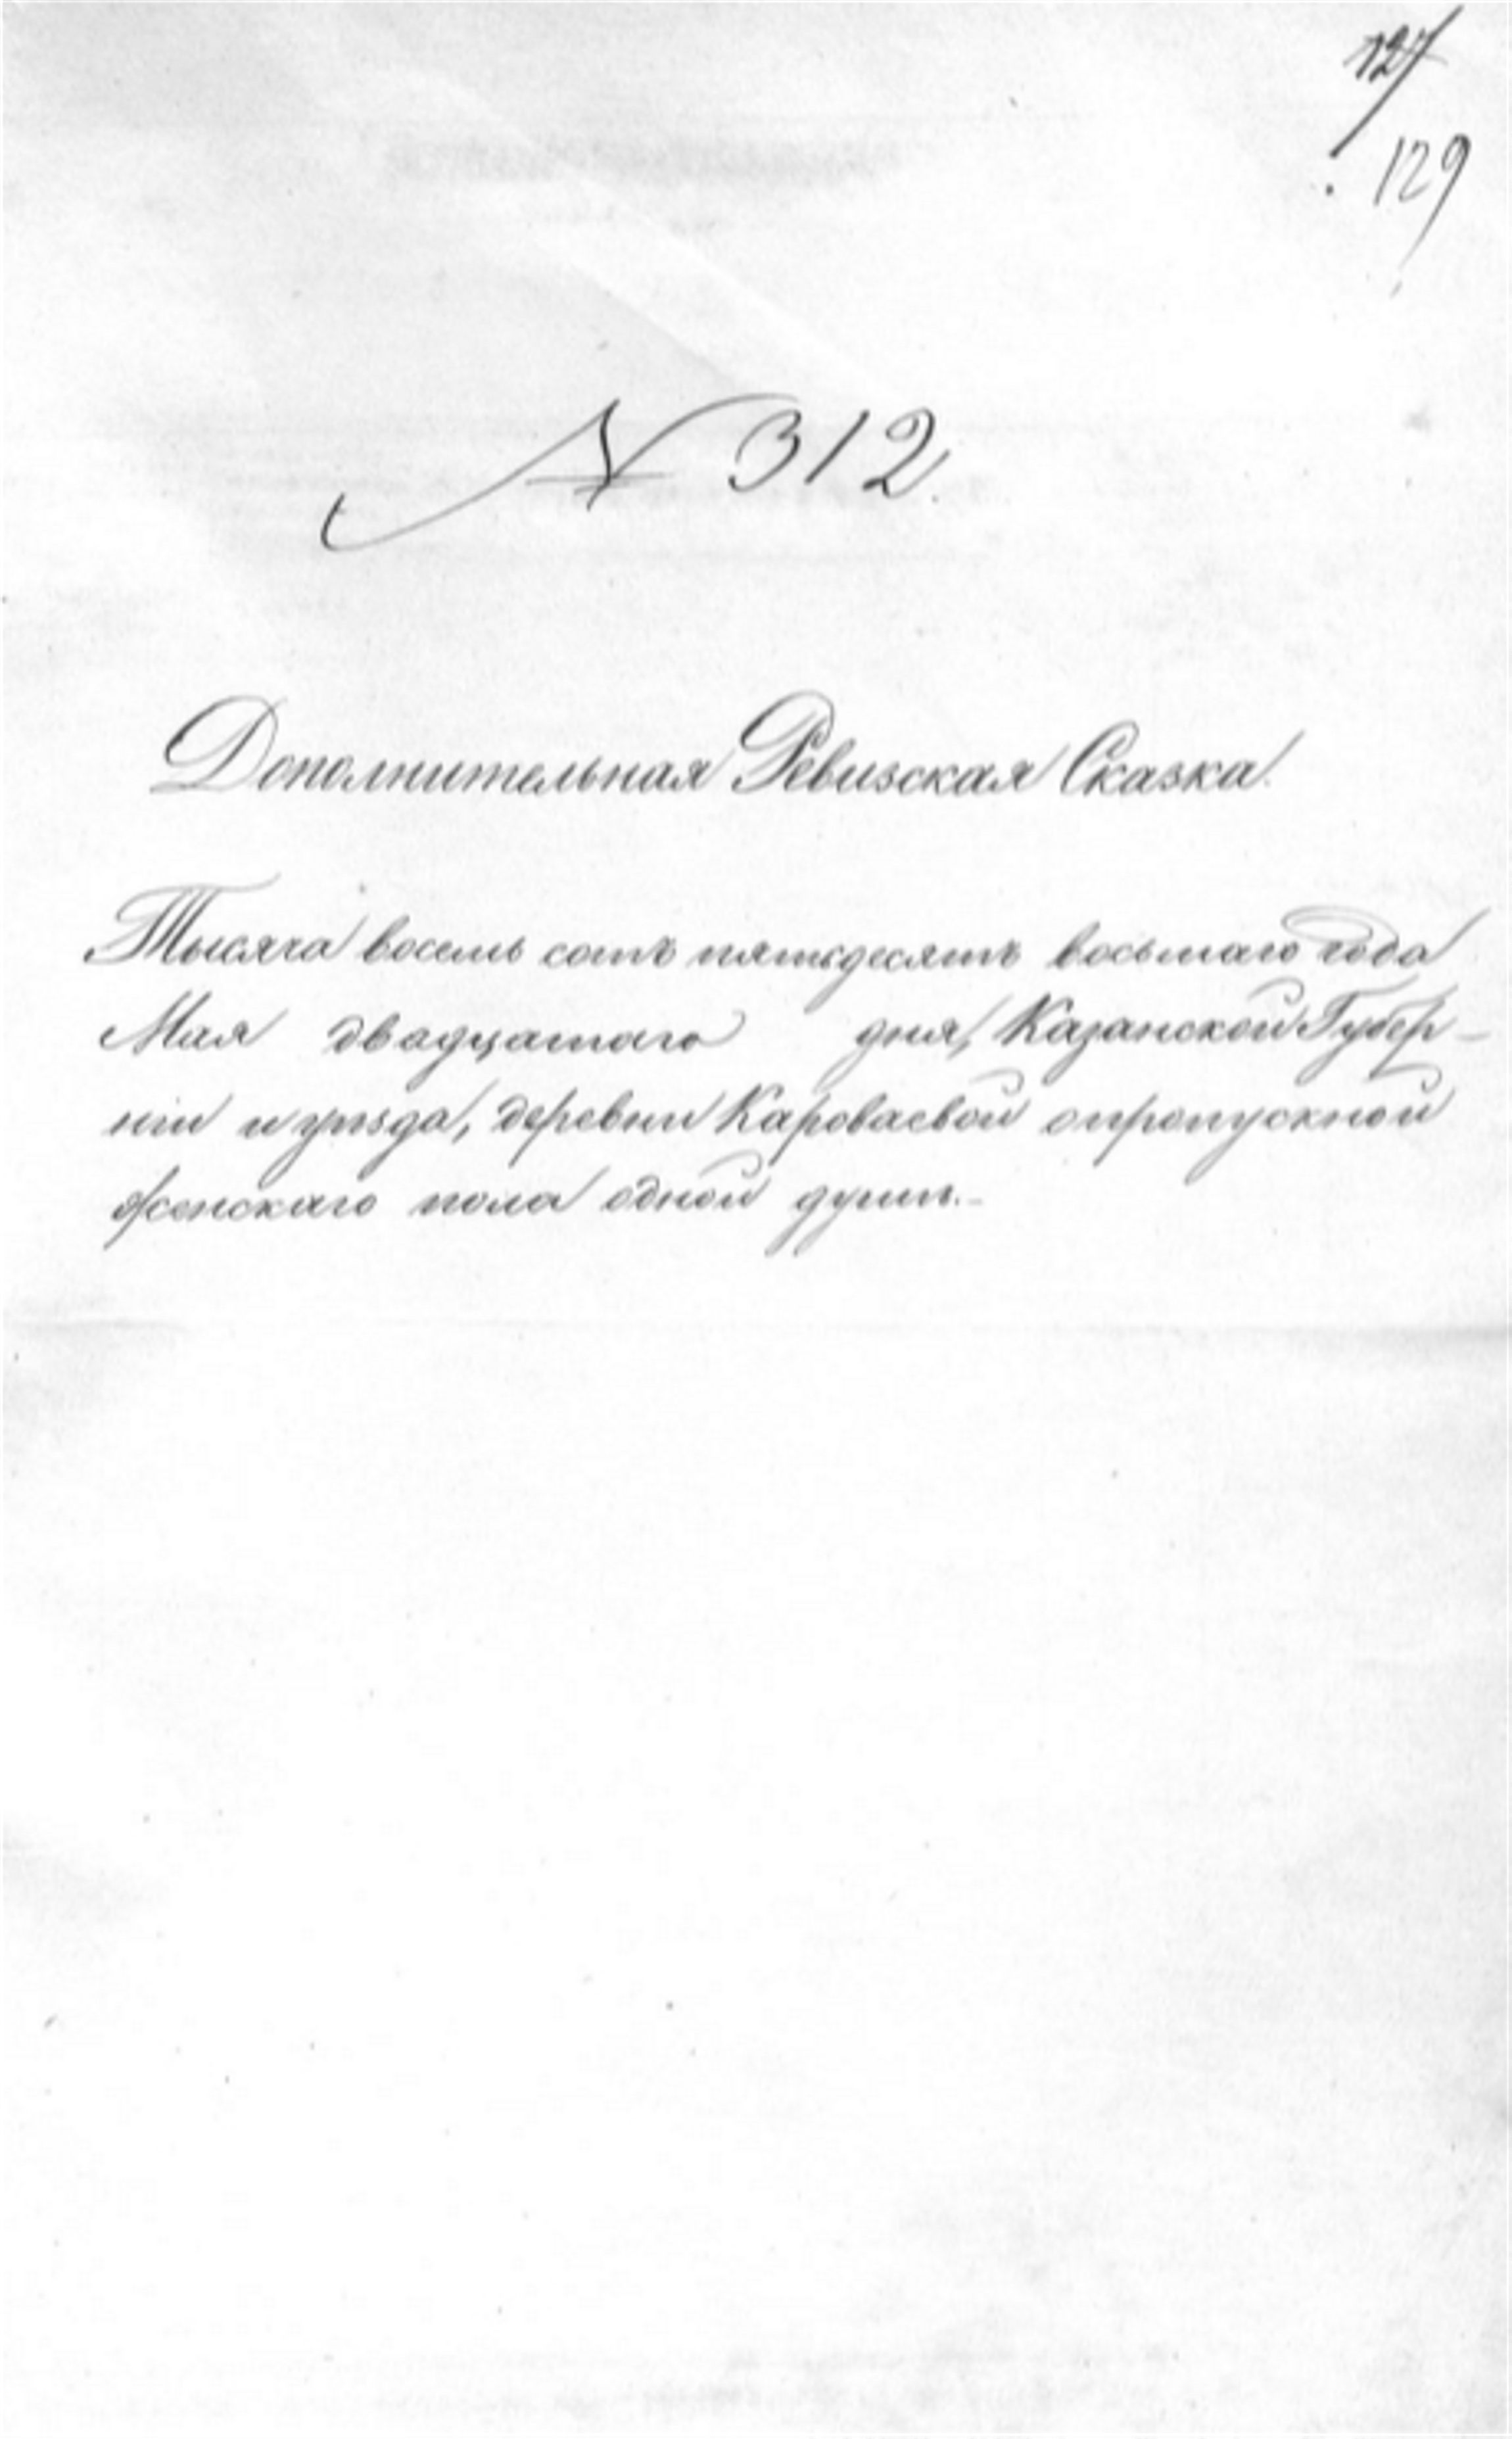 127
129
№ 312.
Дополнительная Ревизская Сказка.
Тысяча восемь сотъ пятьдесятъ восьмаго года
Мая двадцатаго дня, Казанской Губер-
ніи и уѣзда, деревни Кароваевой опропускной
женскаго пола одной души.-